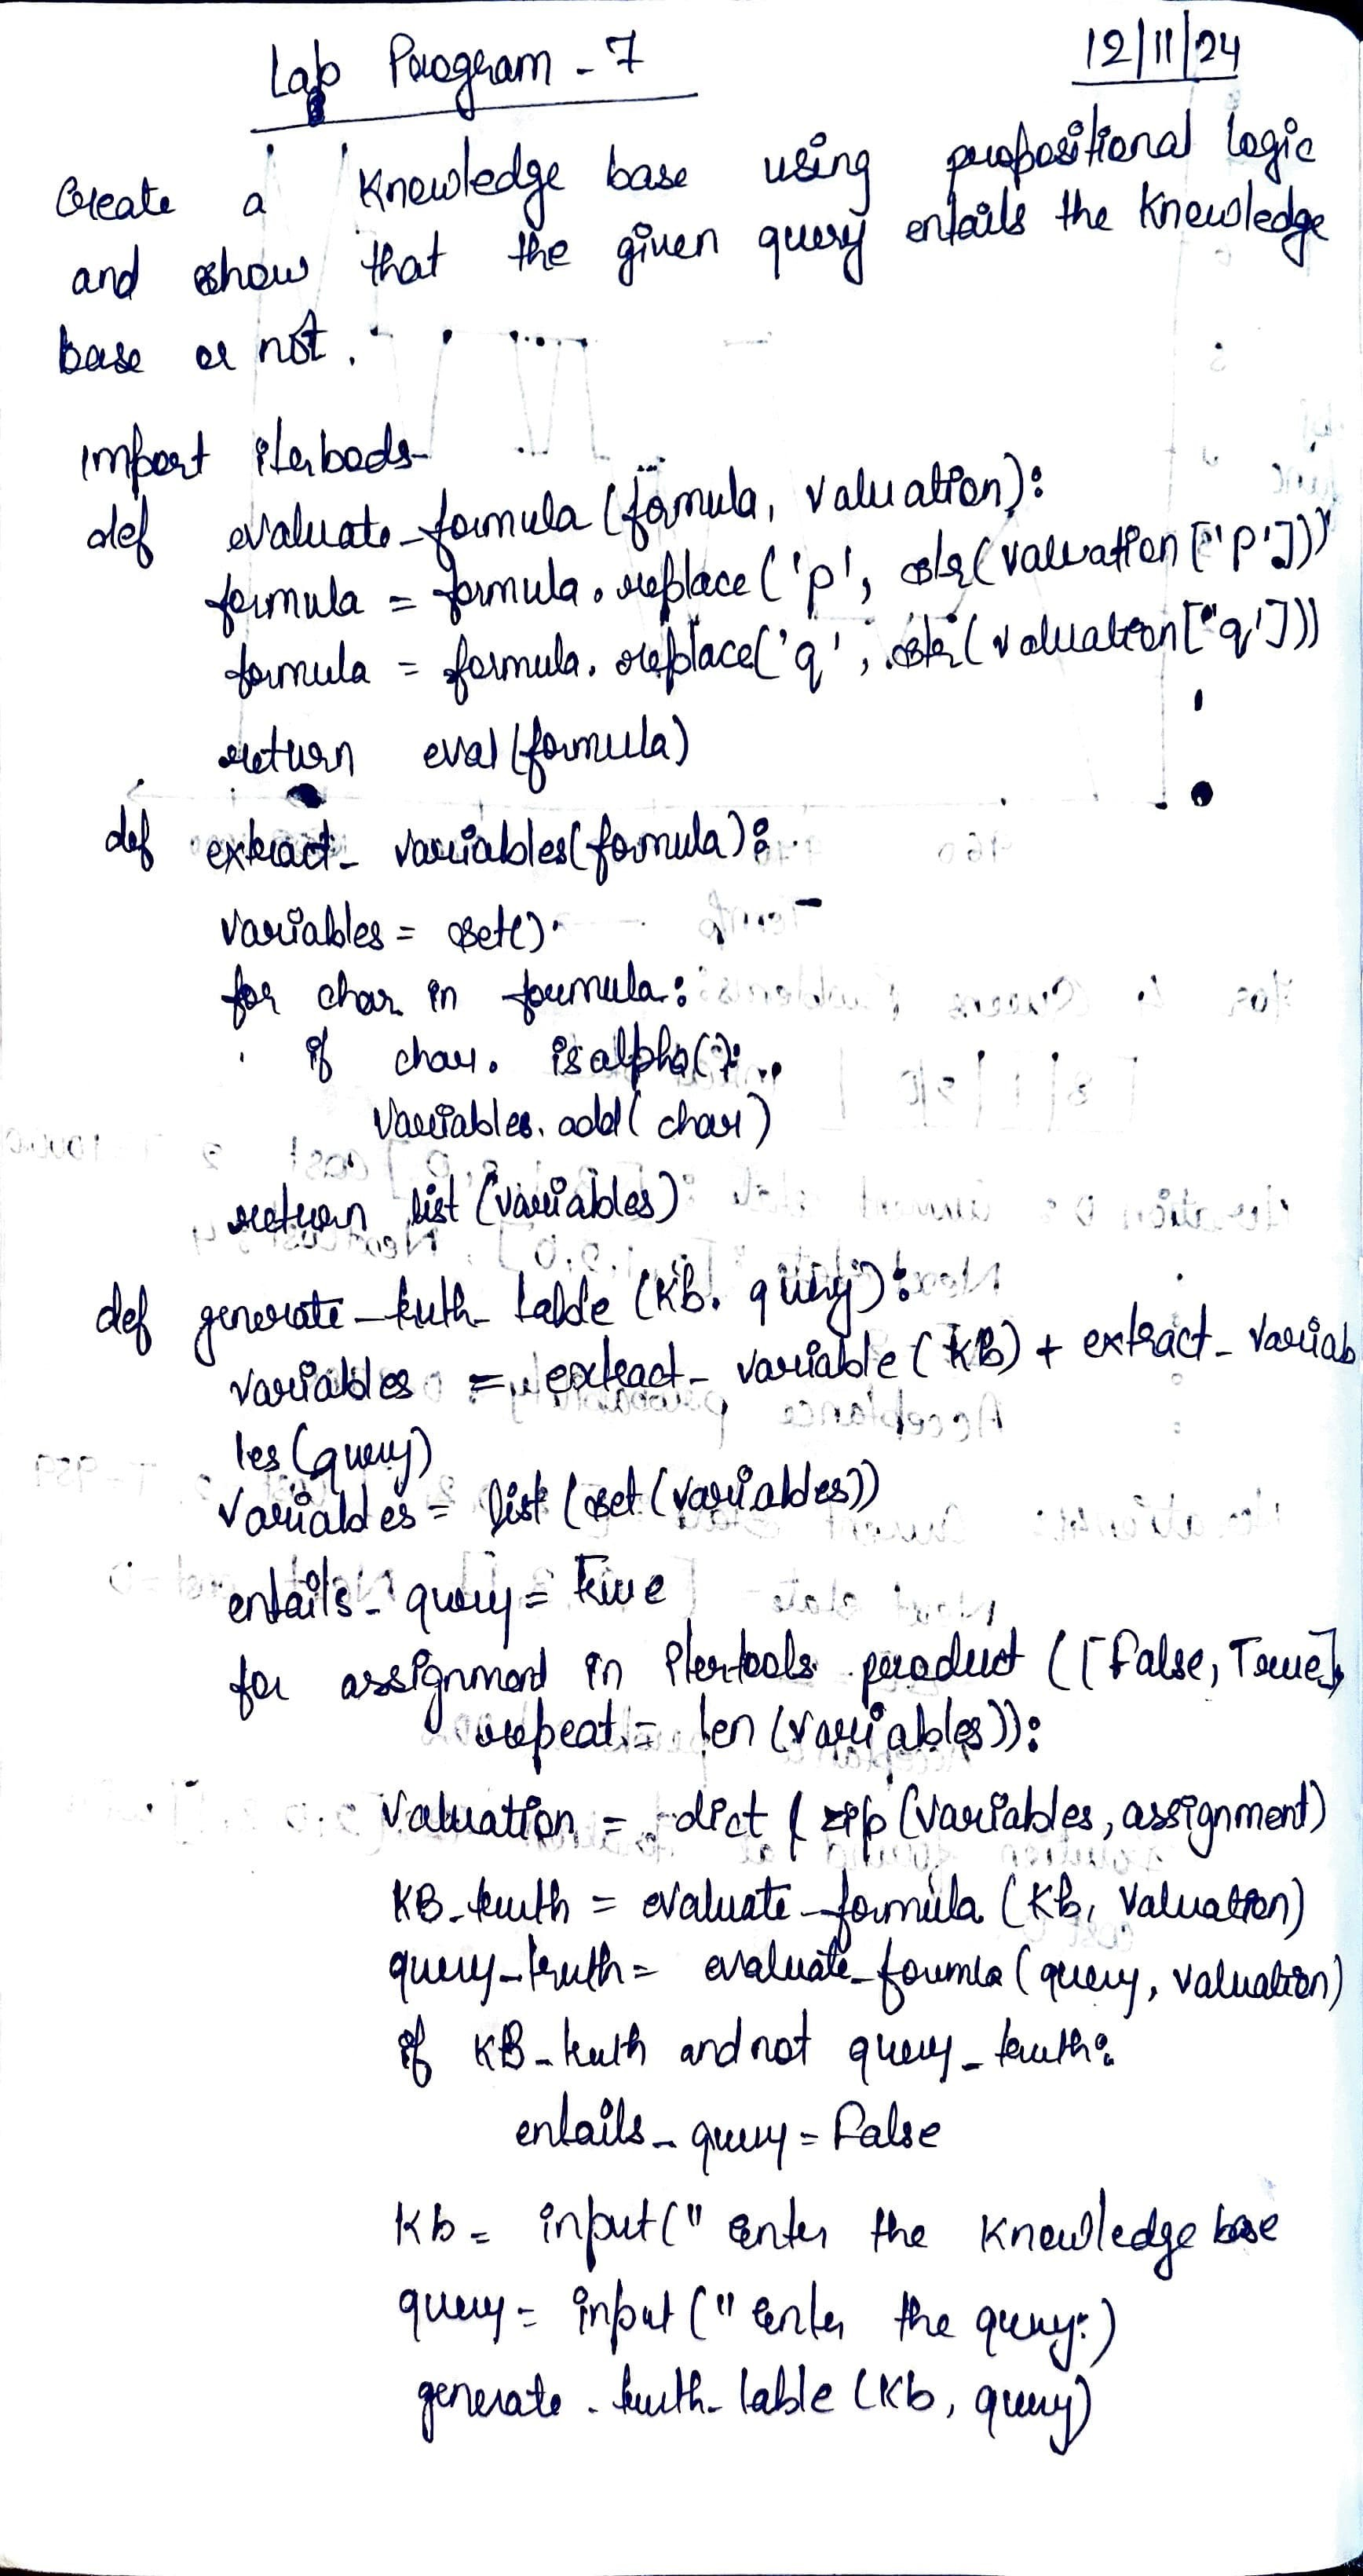 Lab Program - 7
12/11/24
Create a Knowledge base using propositional logic
and show that the given query entails the Knowledge
base or not.
import itertools
def evaluate_formula (formula, valuation):
formula = formula.replace('p', str(valuation['p']))
formula = formula.replace('q', str(valuation['q']))
return eval(formula)
def extract_variables(formula):
variables = set()
for char in formula:
if char. isalpha():
variables.add(char)
return list (variables)
def generate_truth_table (Kb, query):
variables = extract_variable(KB) + extract_variab
les (query)
variables = list (set (variables))
entails_query = True
for assignment in itertools.product ([False, True],
repeat = len (variables)):
valuation = dict ( zip (variables, assignment)
KB_truth = evaluate_formula (Kb, valuation)
query_truth = evaluate_foumla (query, valuation)
if KB_truth and not query_truth:
entails_query = False
Kb = input(" enter the Knowledge base
query = input (" enter the query:)
generate_truth_table (Kb, query)